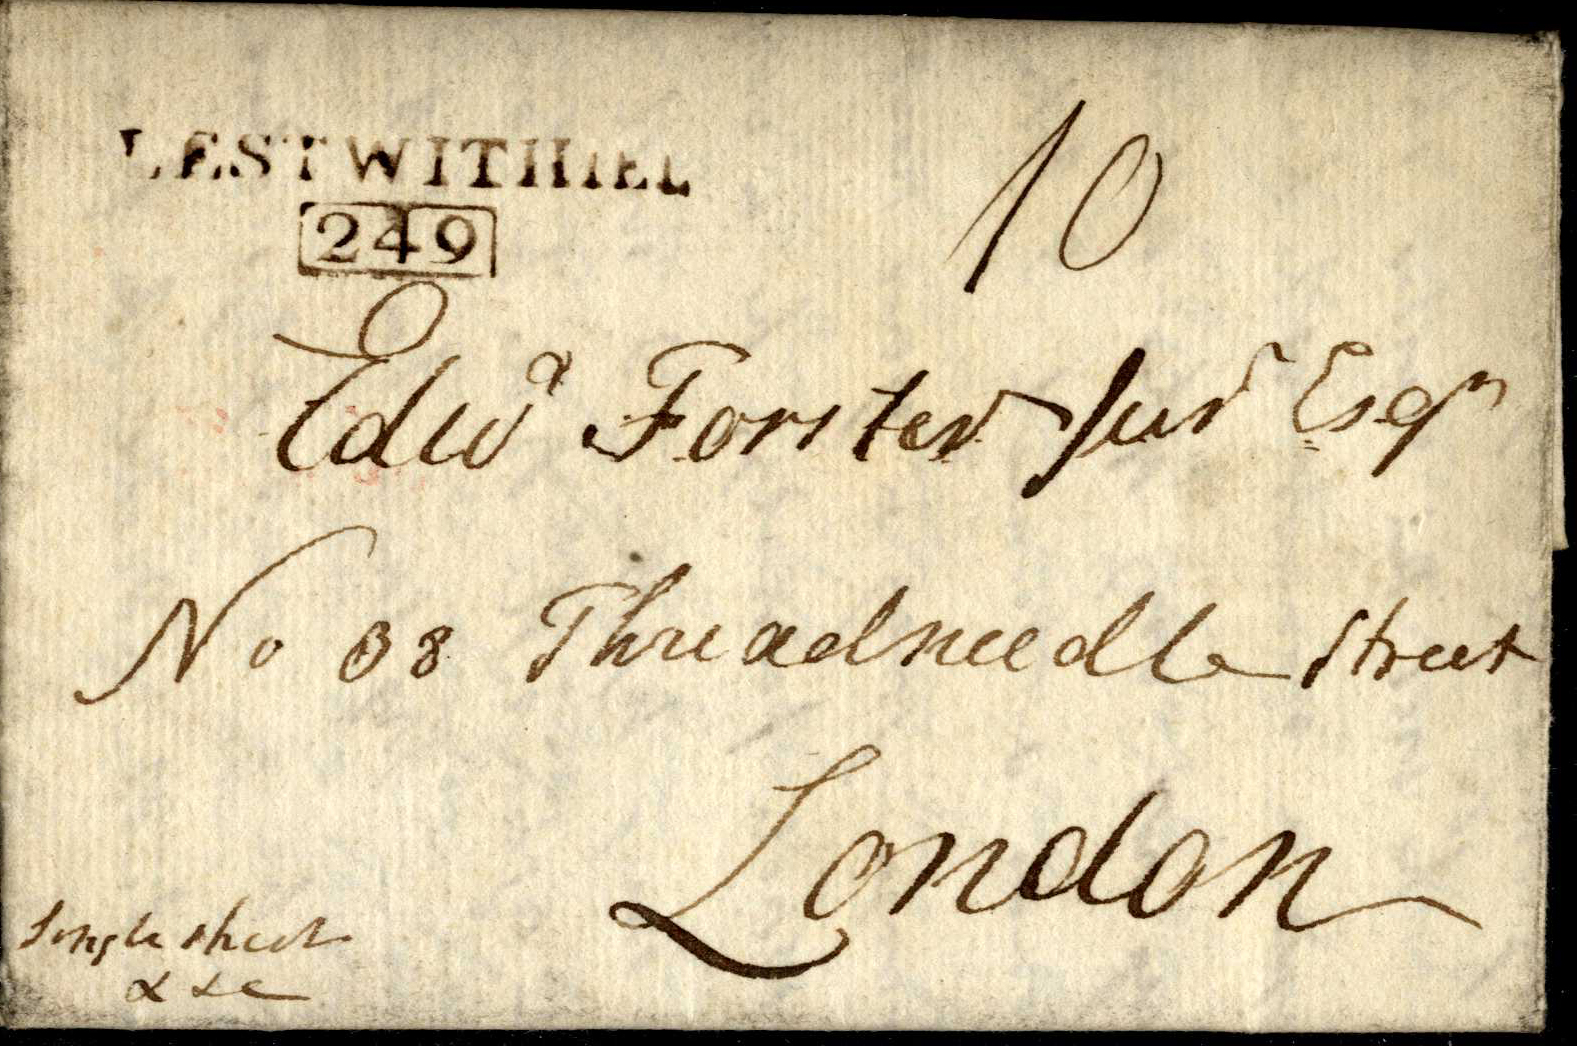 LESTWITHIEL
249
10
Edwd Forster Junr Esqr
No 38 Threadneedle Street
London
Single sheet